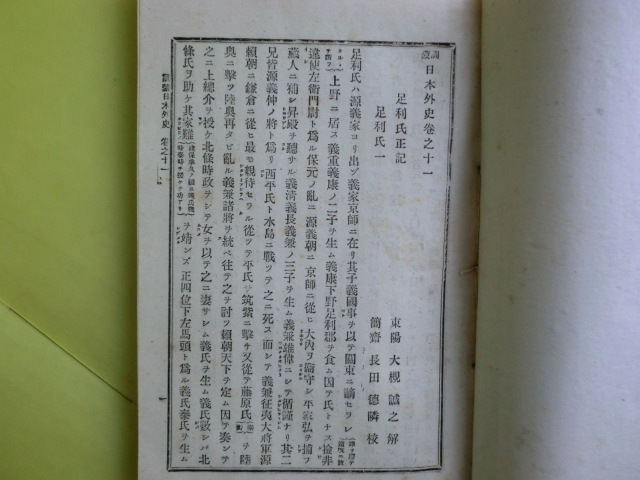 訓蒙日本外史卷之十一
足利氏正記
足利氏一
東陽 大槻誠之 解
簡齋 長田德隣 校
足利氏ハ源義家ヨリ出ヅ義家京師ニ在リ其子義國事ヲ以テ關東ニ謫セラレ
上野ニ居ス義重義康ノ二子ヲ生ム義康下野足利郡ヲ食ム因テ氏トナス檢非
違使左衞門尉ト爲ル保元ノ亂ニ源義朝ニ京師ニ從ヒ大内ヲ衞守シ平家弘ヲ捕フ
藏人ニ補シ昇殿ヲ聽サル義淸義長義兼ノ三子ヲ生ム義兼雄偉ニシテ循謹ナリ其二
兄皆源義仲ノ將ト爲リ西平氏ト水島ニ戰ツテ之ニ死ス而シテ義兼征夷大將軍源
賴朝ニ鎌倉ニ從ヒ最モ親待セラル從ツテ平氏ヲ筑紫ニ擊チ又從テ藤原氏ヲ陸
奧ニ擊ツ陸奧再タビ亂ル義兼諸將ヲ統ベ往テ之ヲ討ツ賴朝天下ヲ定ム因テ奏シテ
之ニ上總介ヲ授ケ北條時政ヲシテ女ヲ以テ之ニ妻サシム義氏ヲ生ム義氏數シバ北
條氏ヲ助ケ其家難ヲ靖ンズ正四位下左馬頭ト爲ル義氏泰氏ヲ生ム
訓蒙日本外史 卷之十一